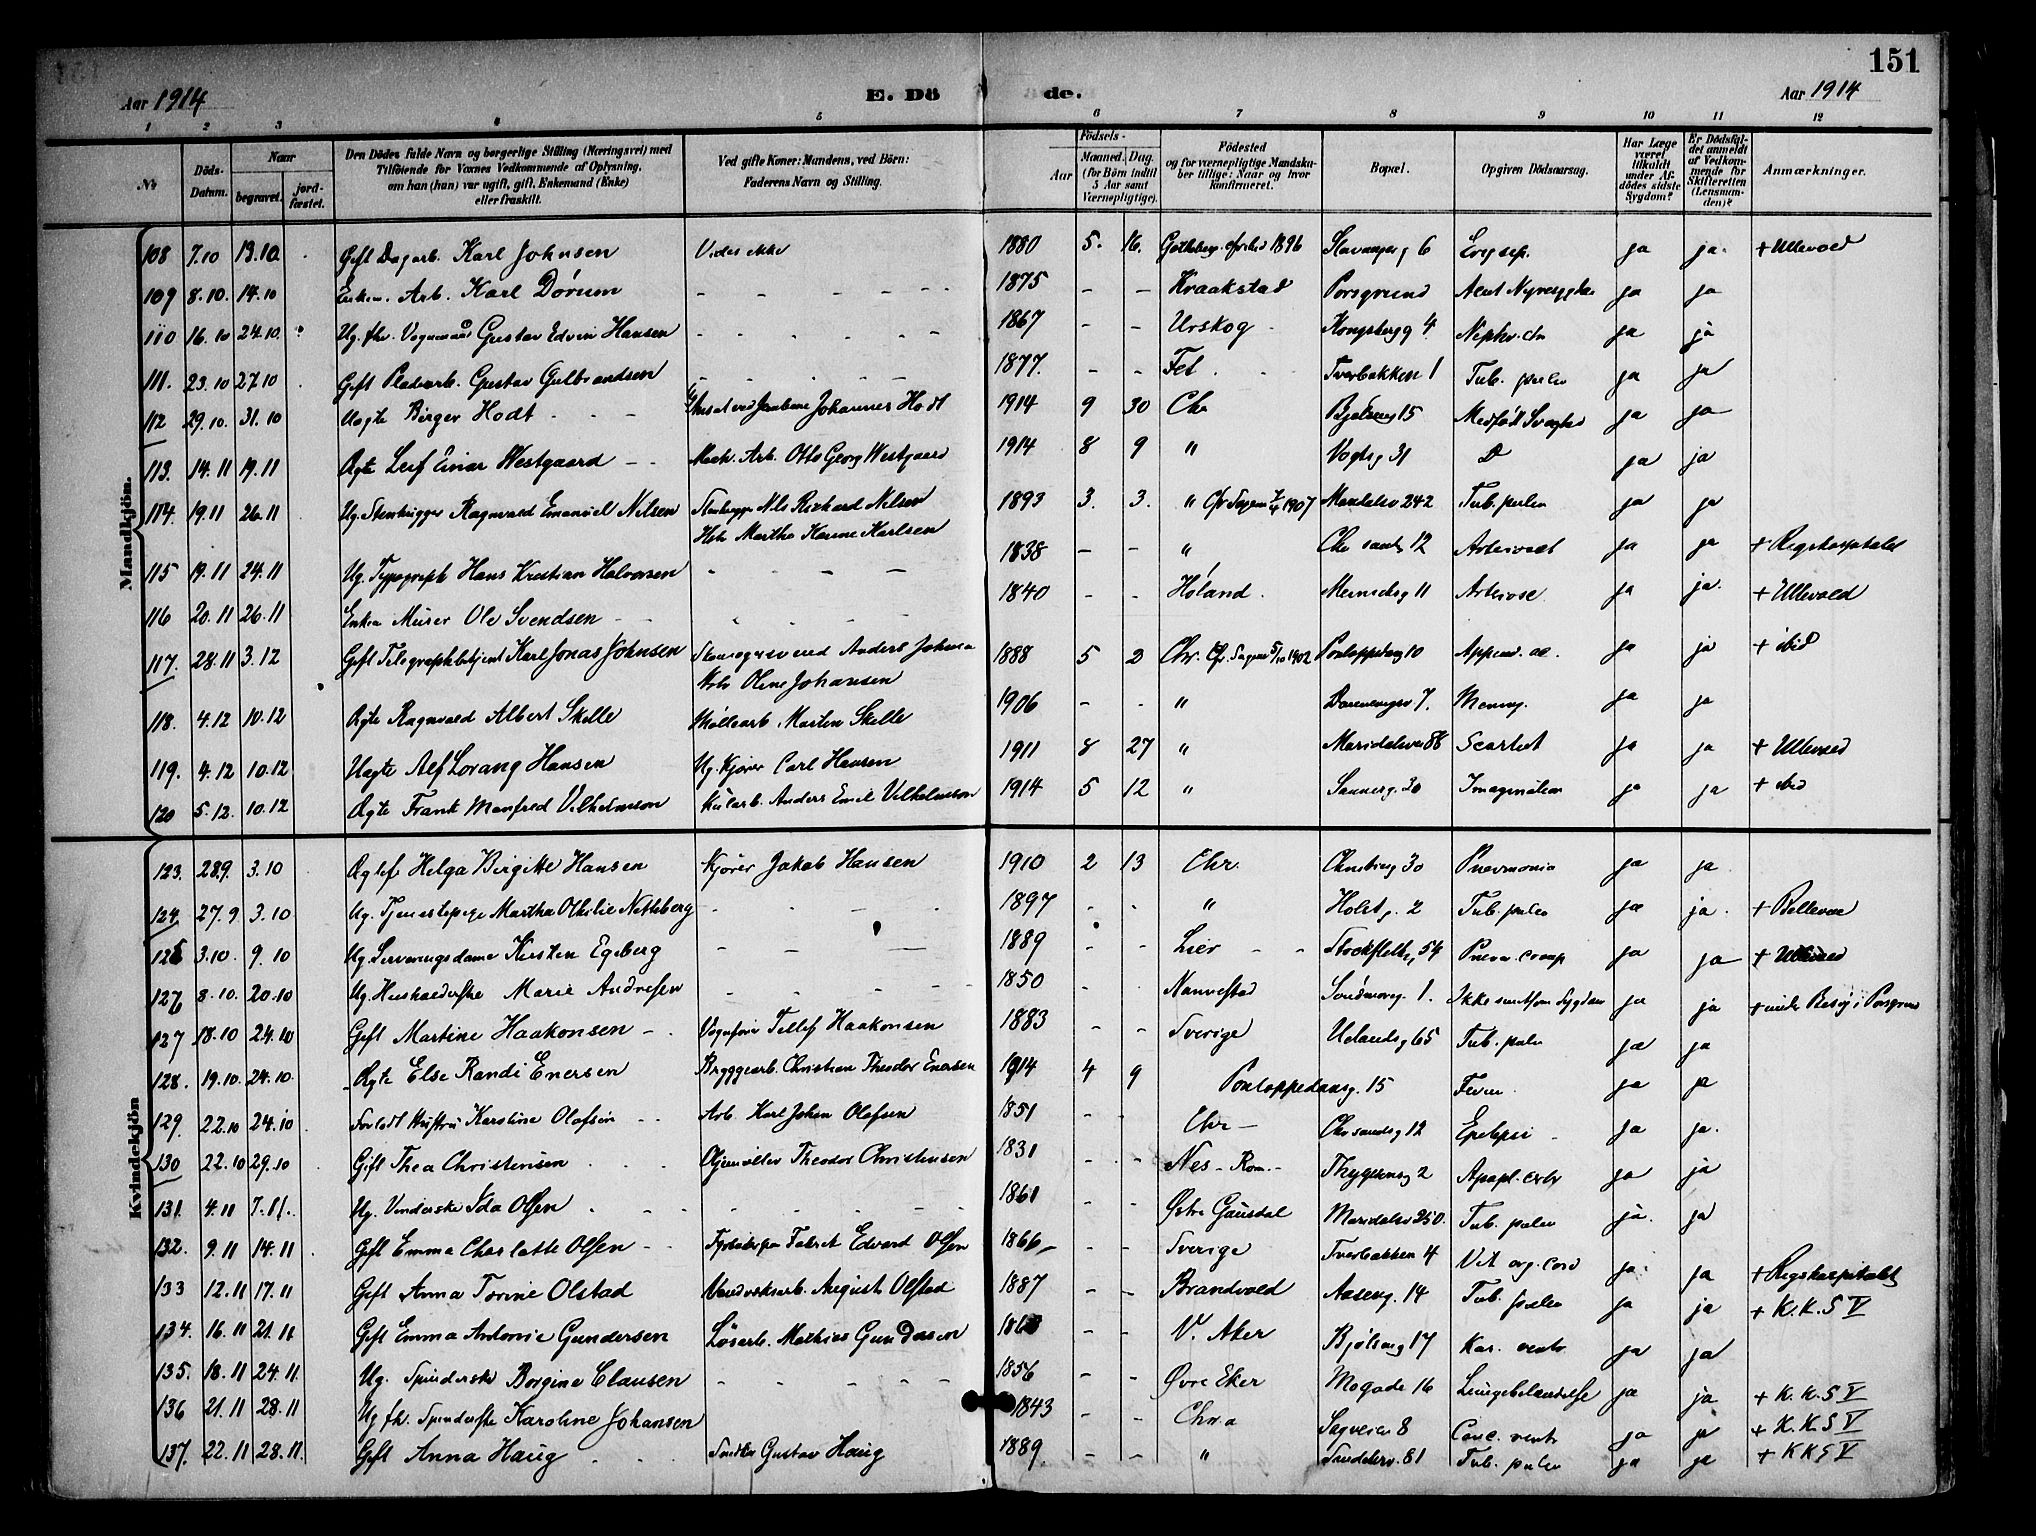 151
Aar 1914
E. Dö de.
Aar 1914
1 2 3 4 5 6 7 8 9 10 11 12
No
Döds-Datum.
Naar
begravet.
jord-fæstet.
Den Dödes fulde Navn og borgerlige Stilling (Næringsvei) med Tilföiende for Voxnes Vedkommende af Oplysning, om han (hun) var ugift, gift, Enkemand (Enke) eller fraskilt.
Ved gifte Koner: Mandens, ved Börn: Faderens Navn og Stilling.
Födsels-
Aar
Maaned. Dag. (for Börn indtil 5 Aar samt Værnepligtige).
Födested og for værnepligtige Mandskaber tillige: Naar og hvor konfirmeret.
Bopæl.
Opgiven Dödsaarsag.
Har Læge været tilkaldt under Afdödes sidste Sygdom?
Er Dödsfaldet anmeldt af Vedkommende for Skifteretten (Lensmanden)?
Anmærkninger.
Mandkjön.
108 7.10 13.10 Gift Dagarb. Karl Johnsen Vides ikke 1880 5. 16. 1896 Stavangerg 6 Erysip. ja ja. + Ullevold
109 8.10. 14.10 Enkem. Arb. Karl Dörum - - - - 1875 - - Kraakstad Porsgrund ja ja
110 16.10 24.10 Ug. fhv. Vognmand Gustav Edvin Hansen - - - - 1867 - - Urskog Kongsberg g 4. Nephr. chr ja ja
111. 23.10 27.10 Gift Pladearb. Gustav Gulbrandsen - - - - 1877. - - Fet Tverbakken 1 Tub. pulm ja ja
112 29.10. 31.10 Uægte Birger Hodt Johannes Hodt 1914 9 30 Chr Bjølseng 15 Medfødt Svaghed ja ja
113. 14.11 19.11 Ægte Leif Einar Westgaard Mek. Arb. Otto Georg Westgaard 1914 8 9 " Vogts g 31 D ja ja
114. 19.11 26.11 Ug. Stenhugger Ragnvald Emanuel Nilsen Stenhugger Nils Rikhard Nilsen 1893 3. 3. " 1907 Maridalsv 242 Tub. pulm ja ja
Hstr Martha Karine Karlsen
115 19.11 24.11 Ug. Typograph Hans Kristian Halvorsen - - - - 1838 - - " Chr sands g 12 ja ja + Rigshospitalet
116 20.11 26.11 Enkem Murer Ole Svendsen 1840 - - Høland. 11 ja ja. + Ullevold
117. 28.11 3.12 Gift Telegraphbetjent Karl Jonas Johnsen Anders Johnsen 1888 5 2 Chr. 1902 Pontoppidang 10 ja ja + ibid
Hstr Oline Johansen
118. 4.12 10.12 Ægte Ragnvald Albert Skille Møllearb. Martin Skille 1906 - - " 7. Mening. ja ja
119. 4.12 10.12 Uægte Alf Lorang Hansen Ug. Kjører Carl Hansen 1911 8 27 " Maridalsvei 88 Scarlat ja ja + Ullevold
120 5.12. 10.12 Ægte Frank Manfred Vilhelmson Kularb. Anders Emil Vilhelmsson 1914 5 12 " Sannerg. 30 ja ja + ibid
Kvindekjön
123. 28.9. 3.10 Ægtef Helga Birgitte Hansen Kjører Jakob Hansen 1910 2 13 Chr. 30 Pnevmonia ja ja
124. 27.9 3.10 Ug. Tjenestepige Martha Othilie Nitteberg - - - 1897 - - " Holst g. 2 Tub. pulm ja ja. + Bellevue
125 3.10. 9.10 Ug. Serveringsdame Kirsten Egeberg - - - 1889 - - Lier Stockfleths g 54 Pneum. croup ja ja + Ullevold
126 8.10. 20.10 Ug. Husholderske Marie Andresen - - - - 1850 - - Nannestad Søndmørg. 1. Ikke smitsom Sygdom ja ja + under Besøg i Porsgrund
127 18.10 24.10 Gift Martine Haakonsen Vognfører Tellef Haakonsen 1883 - - Sverige Uelands g 65 Tub. pulm ja ja
128. 19.10. 24.10. Ægte Else Randi Enersen Bryggearb. Christian Theodor Enersen 1914 4 9 Pontoppidansg. 15 ja ja
129. 22.10 24.10 Forladt Hustru Karoline Olafsen Arb. Karl Johan Olafsen 1851 - - Chr - Chr sands g 12 Epelepsi ja ja.
130 22.10 29.10 Gift Thea Christensen Theodor Christensen 1831 - - Nes - Rom - Thygesens g 2 Apopl. cerebr ja ja
131. 4.11 7.11. Ug. Vinderske Ida Olsen - - - - 1861 - - Østre Gausdal Maridalsv 250. Tub. pulm ja. ja
132. 9.11 14.11 Gift Emma Charlotte Olsen Edvard Olsen 1866 - - Sverige Tverbakken 4 Vit. org. cord ja. ja + Rigshospitalet
133 12.11 17.11 Gift Anna Torine Olstad Vandværksarb. August Olstad 1887 - - Brandvold Aaseng. 14 Tub. pulm ja ja + K.K.S V
134. 16.11 21.11 Gift Emma Antonie Gundersen Løsarb. Mathias Gundersen - - V. Aker Bjølseng 17 Kar. ventr ja ja
135. 18.11 24.11 Ug. Spinderske Borgine Clausen - - - - 1856 - - Øvre Eker Mogade 16 Lungebetændelse ja ja + K.K.S V
136 21.11 28.11 Ug fhv. Spinderske Karoline Johansen 1843 - - Chr.a Sagveien 8 Canc. ventr ja ja + K.K.S V
137. 22.11 28.11. Gift Anna Haug Snedker Gustav Haug 1889. - - " 81 Tub. pulm ja ja + K K S V